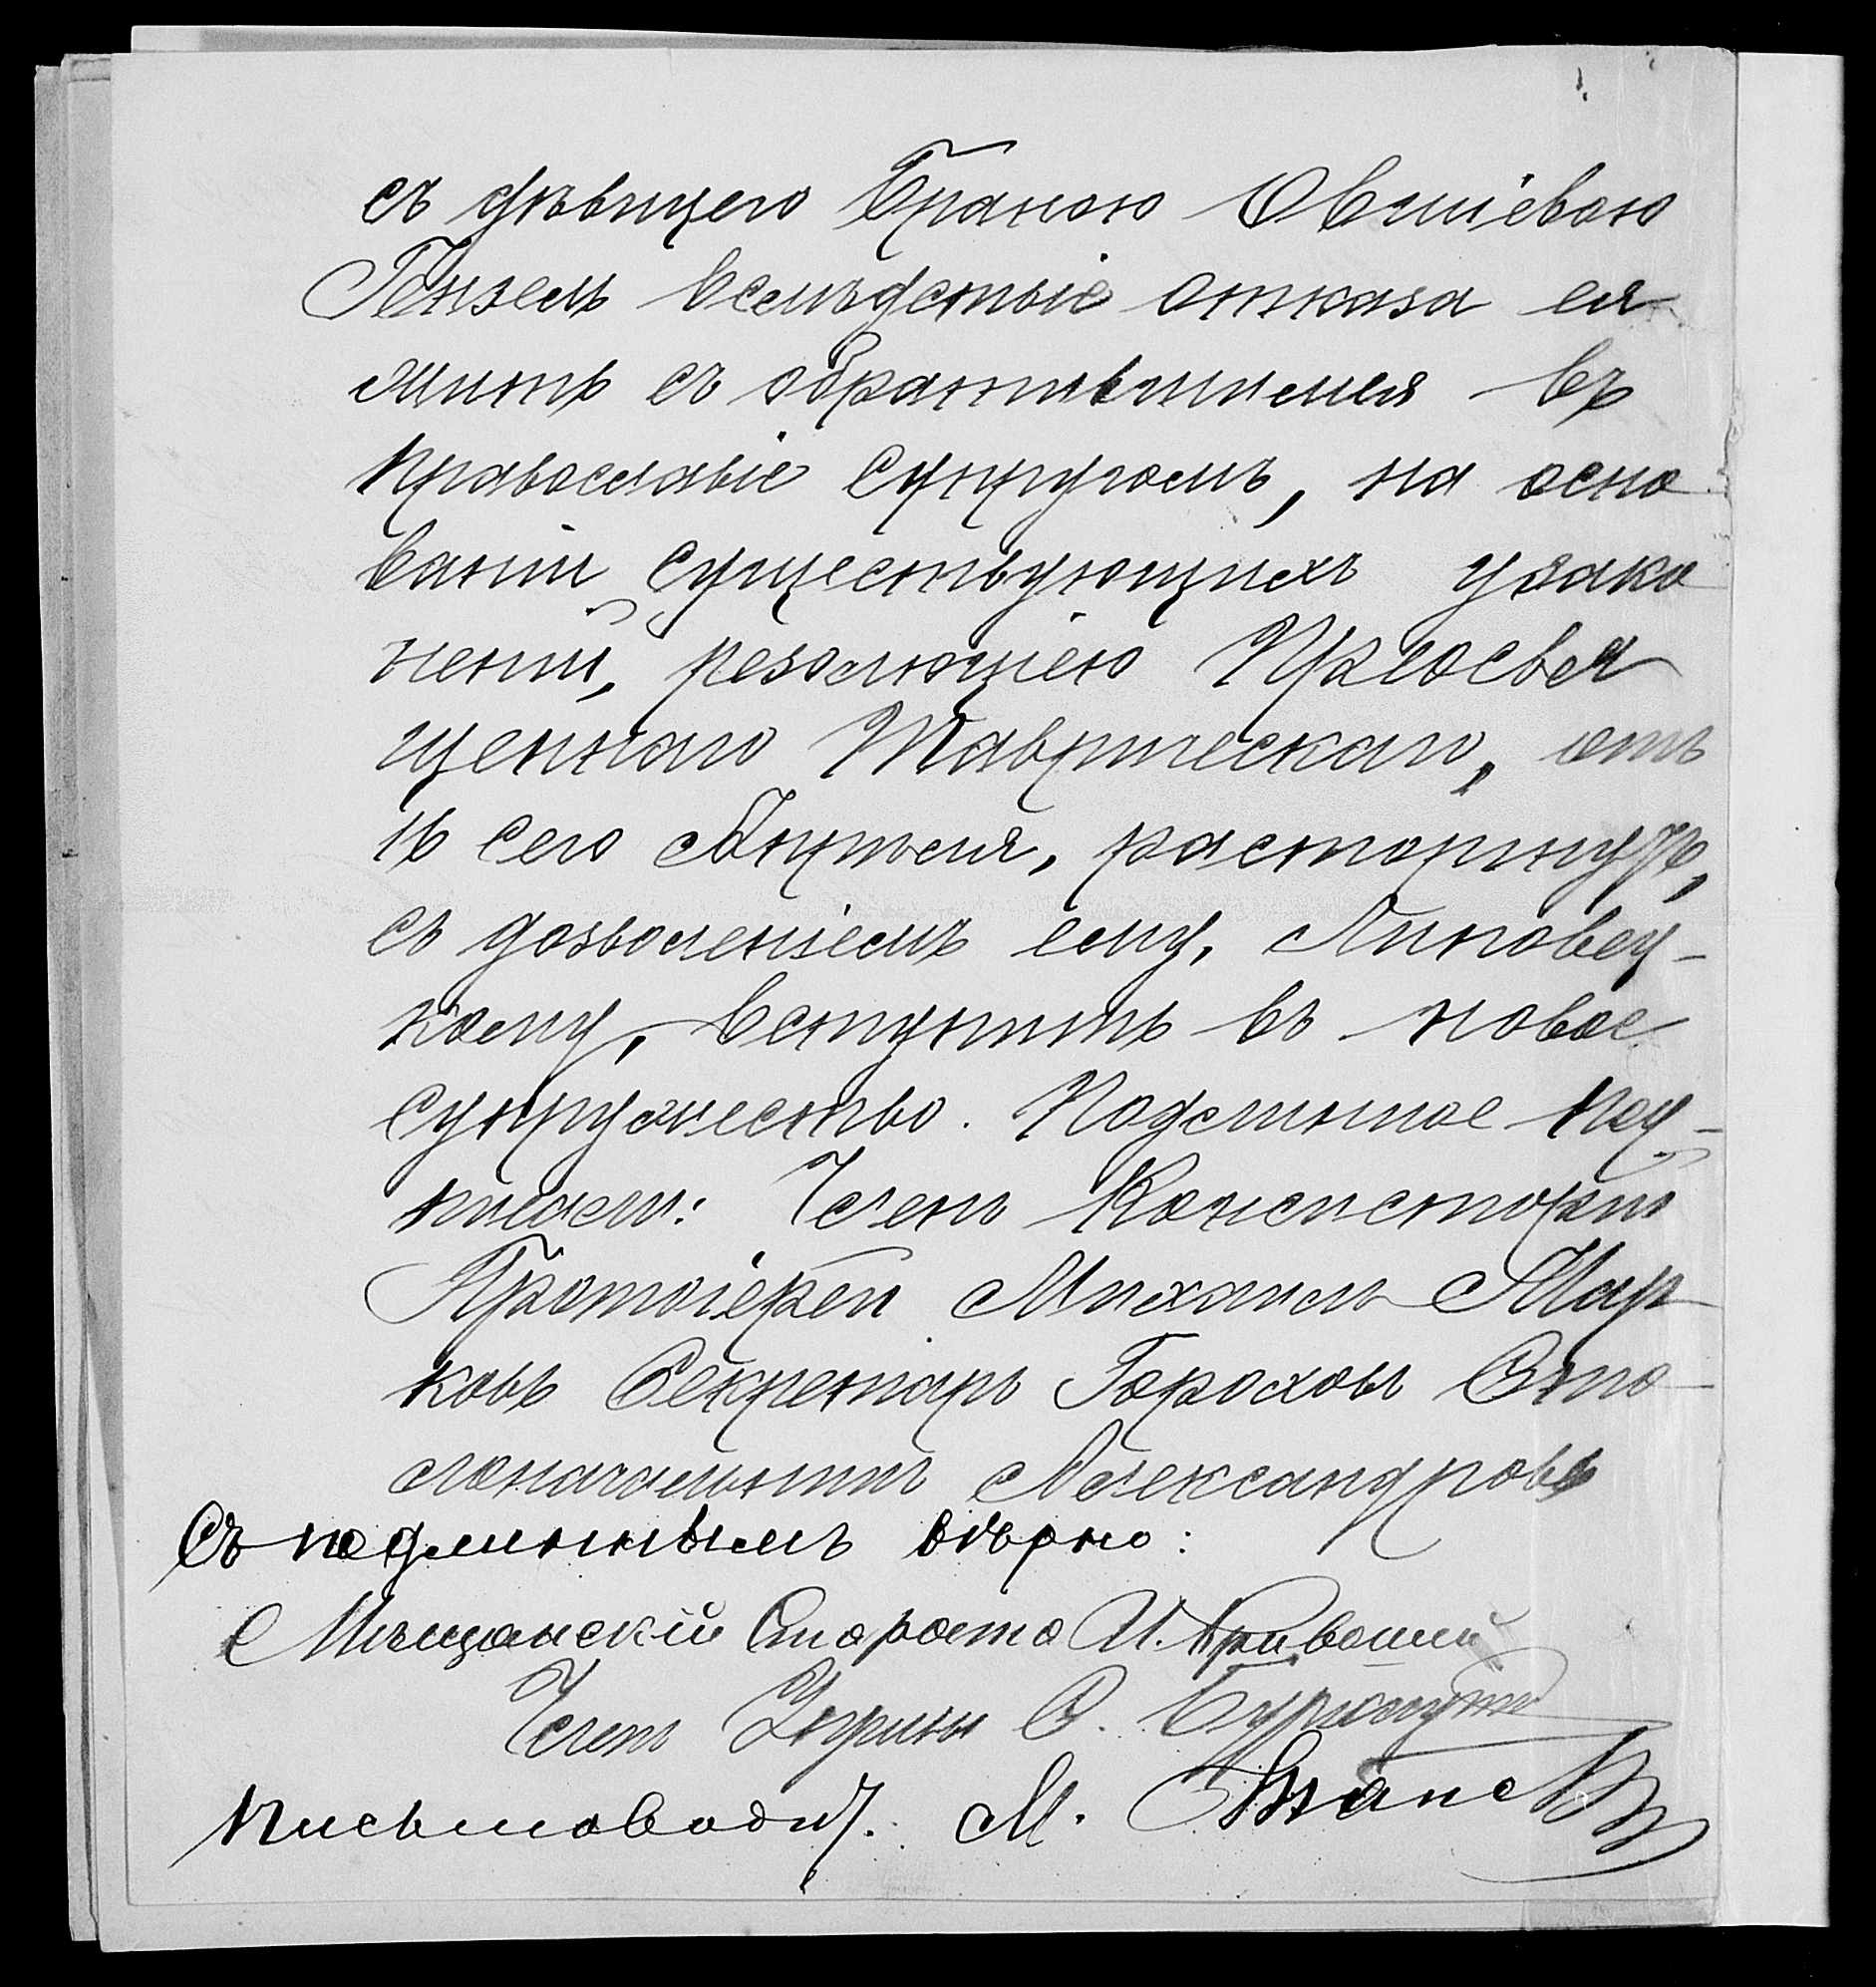 съ дѣвицею Браною Овшіевою
Гензель вслѣдствіе отказа ея
жить съ обратившимся въ
православіе супругомъ, на осно
ваніи существующихъ узако
неній, резолюціею Преосвя
щеннаго Таврическаго, отъ
16 сего Апрѣля, расторгнутъ,
съ дозволеніемъ ему, Липовец-
кому, вступить въ новое
супружество. Подлинное под-
писали: Членъ Консисторіи
Протоіерей Михаилъ Мар
ковъ Секретарь Гороховъ Сто
лоначальникъ Александровъ
Съ подлиннымъ вѣрно:
Мѣщанскій Староста И.
Членъ Управы С.
Письмовод. М.